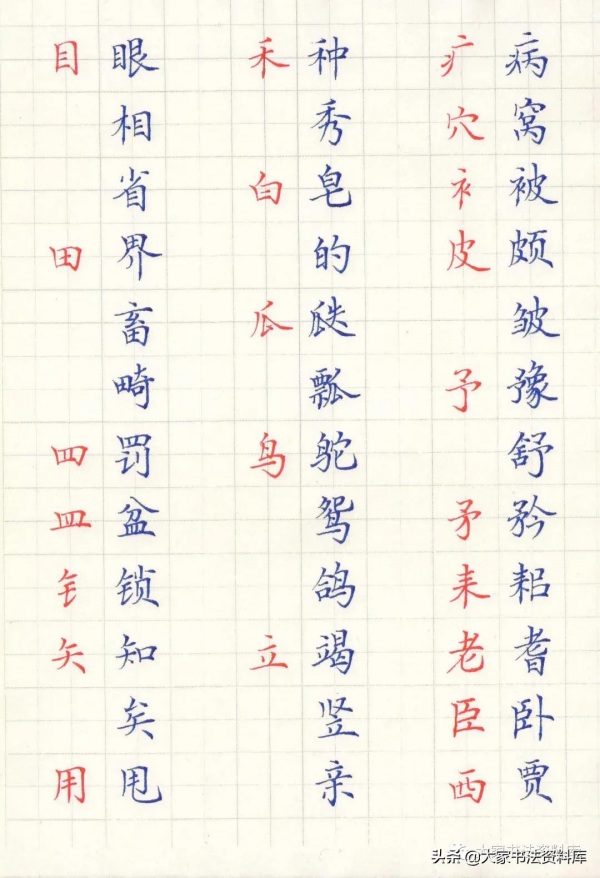 目 眼
相
省
田 界
畜
畸
罒 罚
皿 盆
钅 锁
矢 知
矣
用 甩
禾 种
秀
白 皂
的
瓜 瓞
瓢
鸟 鸵
鸳
鸽
立 竭
竖
亲
疒 病
穴 窝
衤 被
皮 颇
皱
予 豫
舒
矛 矜
耒 耜
老 耆
臣 卧
西 贾
头条 @大家书法资料库
大家书法资料库